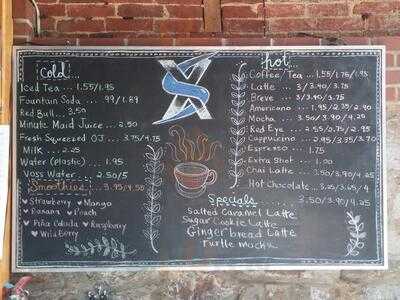 Cold...
Iced Tea ... 1.55/1.95
Fountain Soda ... .99/1.89
Red Bull... 3.50
Minute Maid Juice ... 2.50
Fresh Sqweezed OJ ... 3.75/4.75
Milk ... 2.25
Water (plastic) ... 1.95
Voss Water ... 2.50/5
Smoothies ... 3.95/4.95
♥ Strawberry ♥ Mango
♥ Banana ♥ Peach
♥ Piña Colada ♥ Raspberry
♥ Wild Berry
hot...
Coffee / Tea ... 1.55/1.75/1.95
Latte ... 3/3.40/3.75
Breve ... 3/3.40/3.75
Americano ... 1.95/2.35/2.90
Mocha ... 3.50/3.90/4.25
Red Eye ... 2.55/2.75/2.95
Cappuccino ... 2.95/3.35/3.70
Espresso ... 1.75
Extra Shot ... 1.00
Chai Latte ... 3.50/3.90/4.25
Hot Chocolate ... 3.25/3.65/4
Specials ... 3.50/3.90/4.25
Salted Caramel Latte
Sugar Cookie Latte
Gingerbread Latte
Turtle Mocha